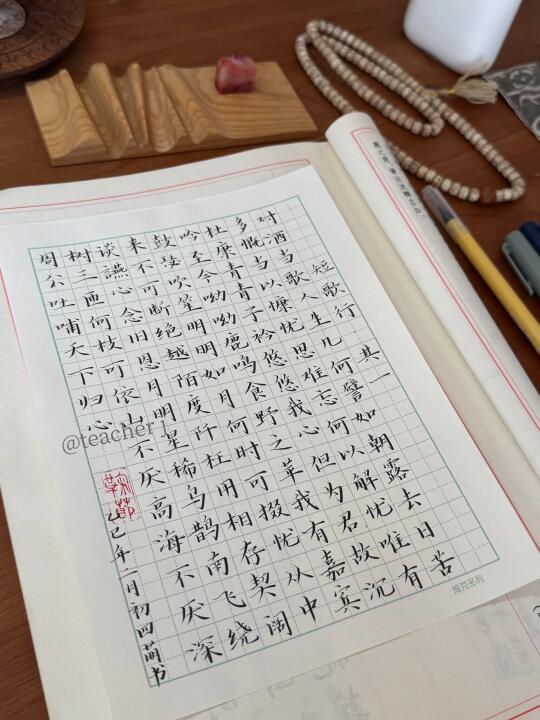 短歌行 其一
对酒当歌人生几何譬如朝露去日苦
多慨当以慷忧思难忘何以解忧唯有
杜康青青子衿悠悠我心但为君故沉
吟至今呦呦鹿鸣食野之苹我有嘉宾
鼓瑟吹笙明明如月何时可掇忧从中
来不可断绝越陌度阡枉用相存契阔
谈讌心念旧恩月明星稀乌鹊南飞绕
树三匝何枝可依山不厌高海不厌深
周公吐哺天下归心
乙巳年二月初四萌书
维克多利
@teacher l